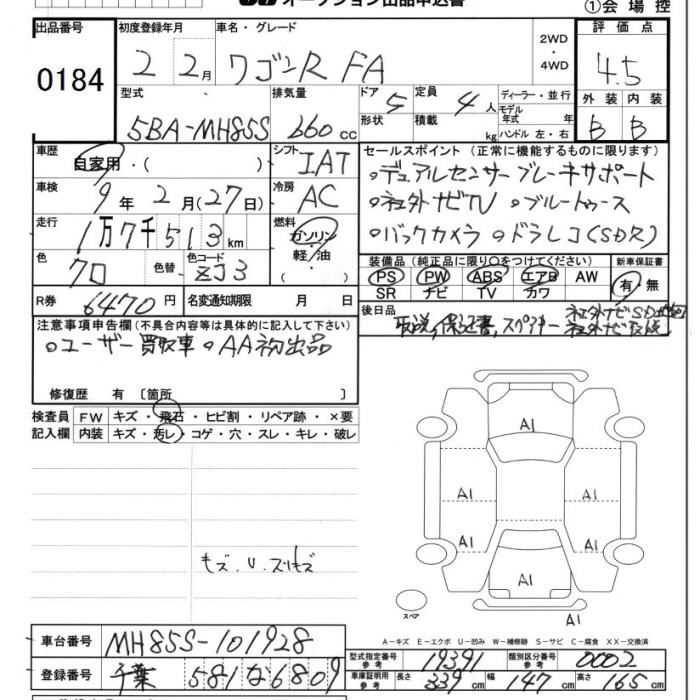 オークション出品申込書
①会場控
出品番号 0184
初度登録年月 2 2月
車名・グレード ワゴンR FA
2WD・4WD
評価点 4.5
外装 B 内装 B
型式 5BA-MH85S
排気量 660cc
ドア 5 形状
定員 4人 積載 kg
ディーラー・並行
モデル年式 年
ハンドル 左・右
車歴 自家用・( )
シフト IAT
車検 9年 2月(27日)
冷房 AC
走行 1万7千513km
燃料 ガソリン・軽油・( )
色 クロ 色替 色コード ZJ3
R券 6470円 名変通知期限 月 日
セールスポイント (正常に機能するものに限ります)
○デュアルセンサーブレーキサポート
○社外ナビTV ○ブルートゥース
○バックカメラ ○ドラレコ(SDR)
装備品 (純正品に限り○をつけてください)
PS PW ABS エアB AW
SR ナビ TV カワ
新車保証書 有・無
後日品 取説,保証書,スペアキー 社外ナビSD地図
社外ナビ取説
注意事項申告欄(不具合内容等は具体的に記入して下さい)
○ユーザー買取車 ○AA初出品
修復歴 有 〔箇所 〕
検査員記入欄
FW キズ・飛石・ヒビ割・リペア跡・×要
内装 キズ・汚レ・コゲ・穴・スレ・キレ・破レ
キズ.U.スリキズ
A1
A1 A1
A1 A1
A1
スペア
A1
A-キズ E-エクボ U-凹み W-補修跡 S-サビ C-腐食 XX-交換済
車台番号 MH85S-101928
登録番号 千葉 581 な 6809
型式指定番号 参考 19391 類別区分番号 参考 0002
車庫証明用 参考 長さ 339cm 幅 147cm 高さ 165cm